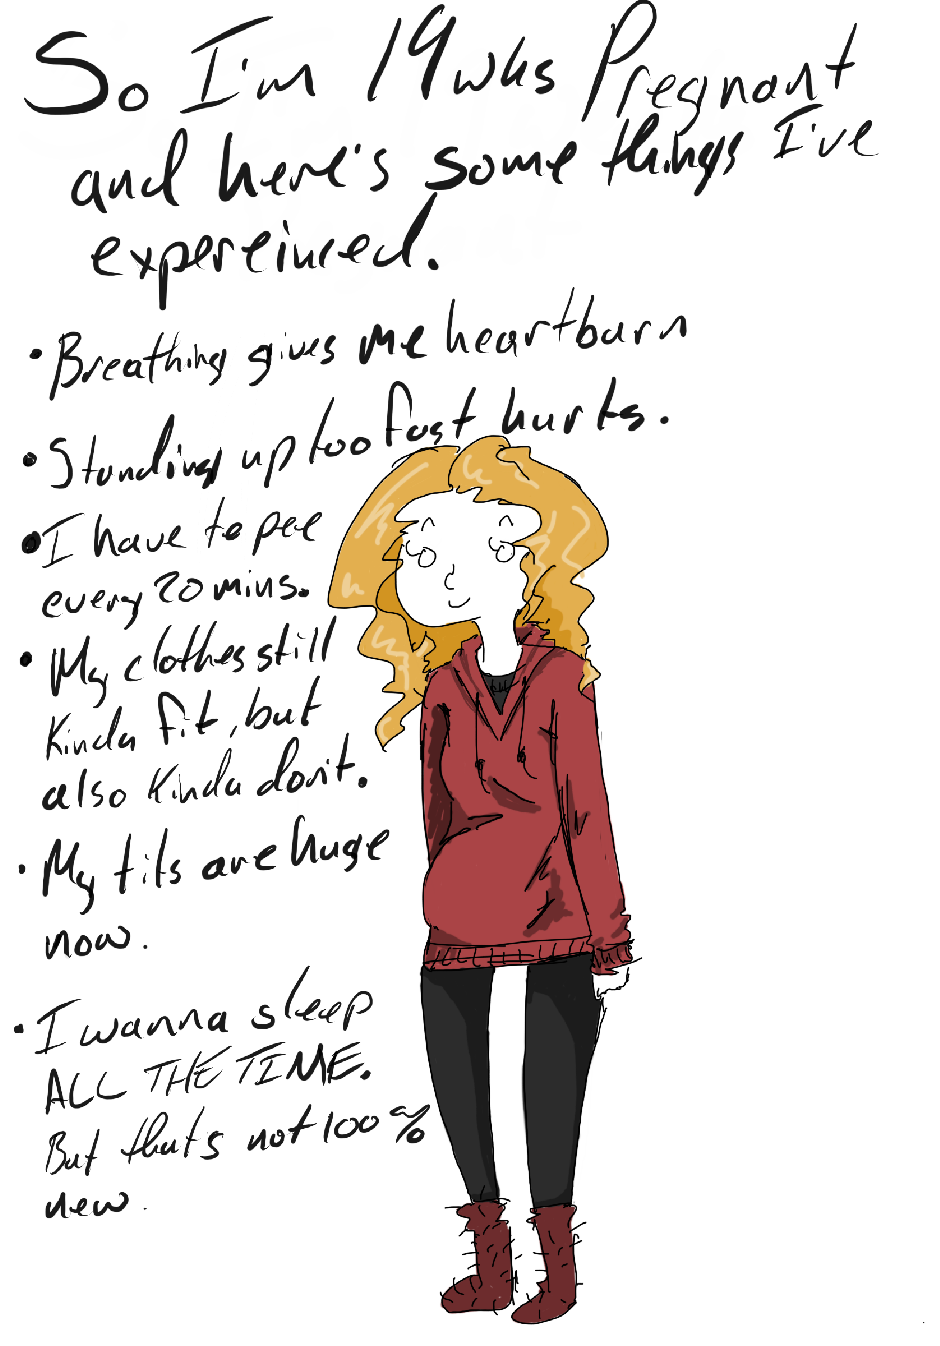 So I'm 19wks Pregnant
and here's some things I've
expereinced.
• Breathing gives me heartburn
• Standing up too fast hurts.
• I have to pee
every 20 mins.
• My clothes still
Kinda fit, but
also Kinda don't.
• My tits are huge
now.
• I wanna sleep
ALL THE TIME.
But that's not 100%
new.